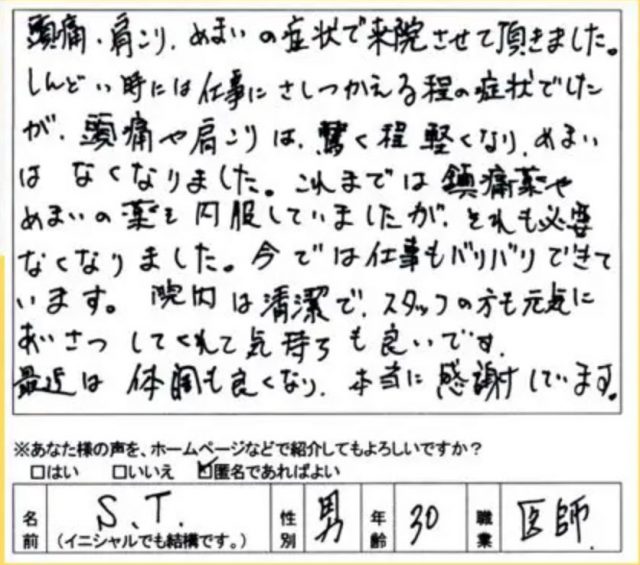 頭痛、肩こり、めまいの症状で来院させて頂きました。
しんどい時には仕事にさしつかえる程の症状でした
が、頭痛や肩こりは、驚く程軽くなり、めまい
はなくなりました。これまでは鎮痛薬や
めまいの薬も内服していましたが、それも必要
なくなりました。今では仕事もバリバリできて
います。院内は清潔で、スタッフの方も元気に
あいさつしてくれて気持ちも良いです。
最近は体調も良くなり、本当に感謝しています。
※あなた様の声を、ホームページなどで紹介してもよろしいですか？
□はい □いいえ ☑匿名であればよい
名前 S.T. (イニシャルでも結構です。) 性別 男 年齢 30 職業 医師.